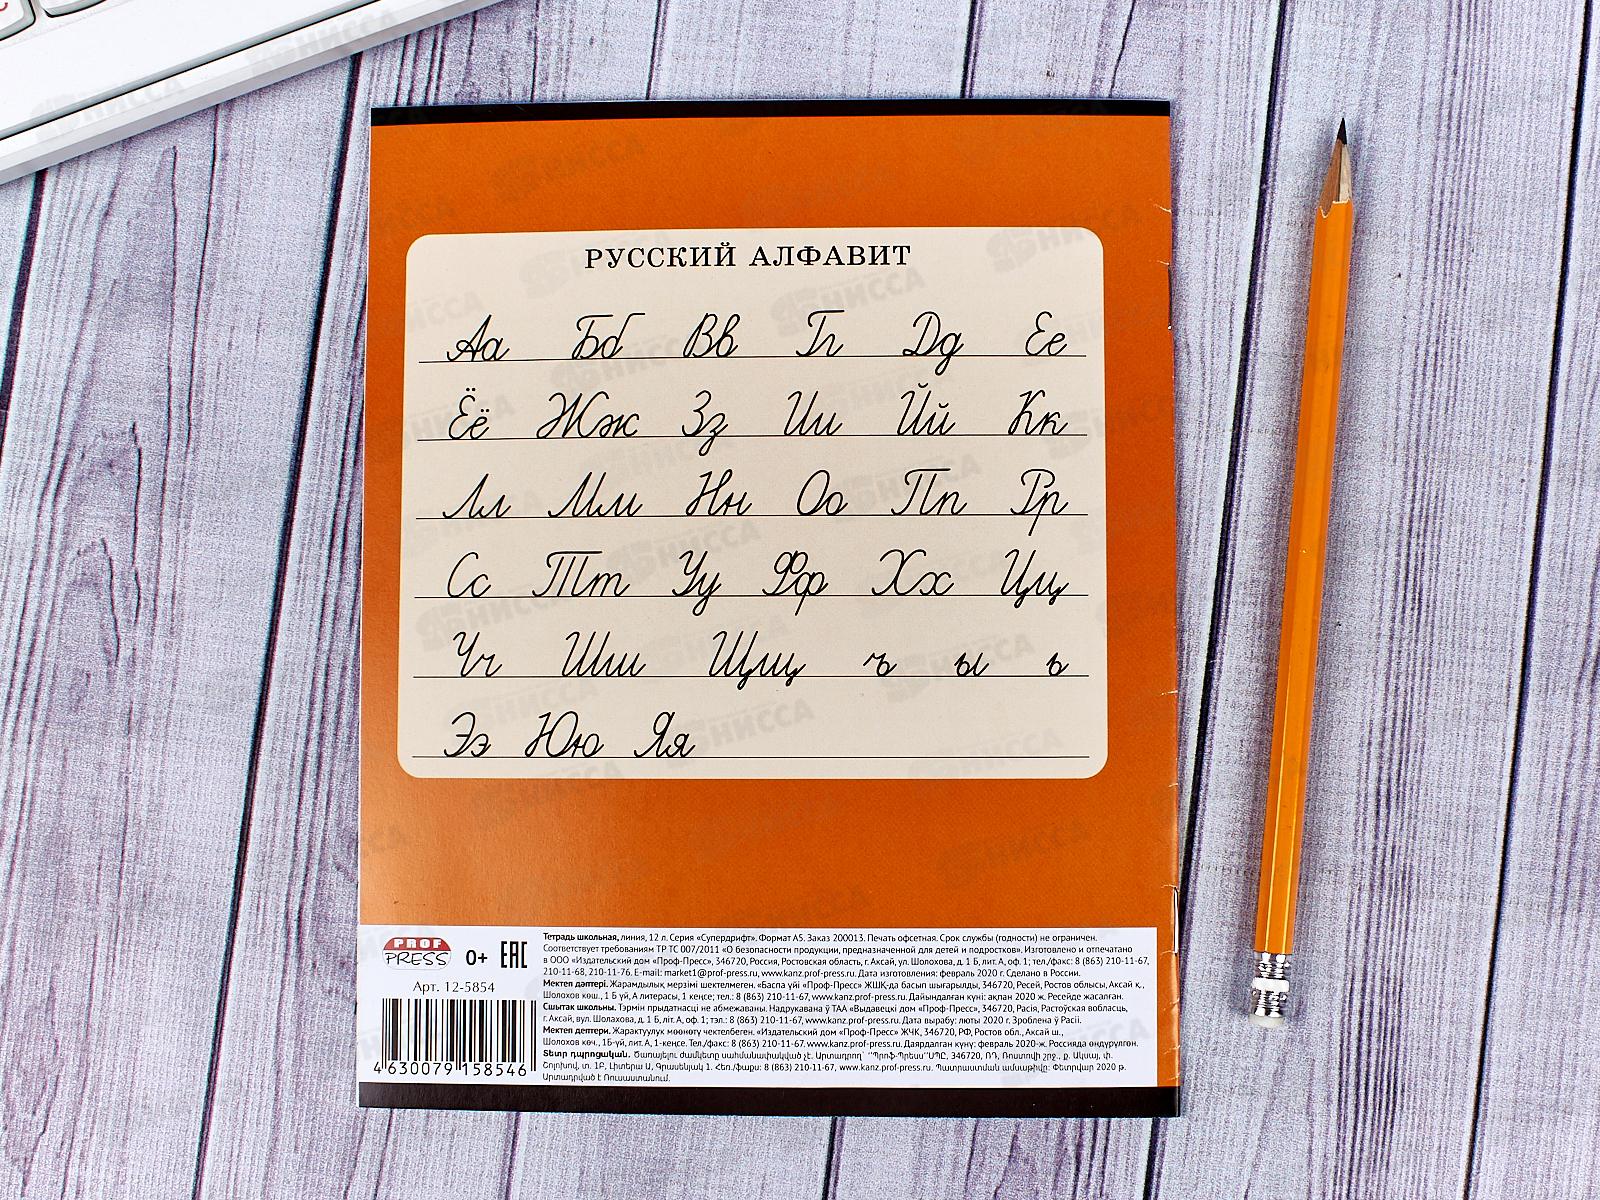 РУССКИЙ АЛФАВИТ
Аа Бб Вв Гг Дд Ее
Ёё Жж Зз Ии Йй Кк
Лл Мм Нн Оо Пп Рр
Сс Тт Уу Фф Хх Цц
Чч Шш Щщ ъ ы ь
Ээ Юю Яя
PROF PRESS
0+ EAC
Арт. 12-5854
4 630079 158546
Тетрадь школьная, линия, 12 л. Серия «Супердрифт». Формат А5. Заказ 200013. Печать офсетная. Срок службы (годности) не ограничен.
Соответствует требованиям ТР ТС 007/2011 «О безопасности продукции, предназначенной для детей и подростков». Изготовлено и отпечатано
в ООО «Издательский дом «Проф-Пресс», 346720, Россия, Ростовская область, г. Аксай, ул. Шолохова, д. 1 Б, лит. А, оф. 1; тел./факс: 8 (863) 210-11-67,
210-11-68, 210-11-76. E-mail: market1@prof-press.ru, www.kanz.prof-press.ru. Дата изготовления: февраль 2020 г. Сделано в России.
Мектеп дәптері. Жарамдылық мерзімі шектелмеген. «Баспа үйі «Проф-Пресс» ЖШҚ-да басып шығарылды, 346720, Ресей, Ростов облысы, Аксай қ.,
Шолохов көш., 1 Б үй, А литерасы, 1 кеңсе; тел.: 8 (863) 210-11-67, www.kanz.prof-press.ru. Дайындалған күні: ақпан 2020 ж. Ресейде жасалған.
Сшытак школьны. Тэрмін прыдатнасці не абмежаваны. Надрукавана ў ТАА «Выдавецкі дом «Проф-Пресс», 346720, Расія, Растоўская вобласць,
г. Аксай, вул. Шолахава, д. 1 Б, літ. А, оф. 1; тэл.: 8 (863) 210-11-67, www.kanz.prof-press.ru. Дата вырабу: люты 2020 г. Зроблена ў Расіі.
Мектеп дептери. Жарактуулук мөөнөтү чектелбеген. «Издательский дом «Проф-Пресс» ЖЧК, 346720, РФ, Ростов обл., Аксай ш.,
Шолохов көч., 1Б-үй, лит. А, 1-кеңсе. Тел./факс: 8 (863) 210-11-67, www.kanz.prof-press.ru. Даярдалган күнү: февраль 2020-ж. Россияда өндүрүлгөн.
Տետր դպրոցական. Ծառայելու ժամկետը սահմանափակված չէ. Արտադրող՝ ՝՝Պրոֆ-Պրեսս՝՝ՍՊԸ, 346720, ՌԴ, Ռոստովի շրջ., ք. Ակսայ, փ.
Շոլոխով, տ. 1Բ, Լիտերա Ա, Գրասենյակ 1. Հեռ./ֆաքս: 8 (863) 210-11-67, www.kanz.prof-press.ru. Պատրաստման ամսաթիվը: Փետրվար 2020 թ.
Արտադրված է Ռուսաստանում.